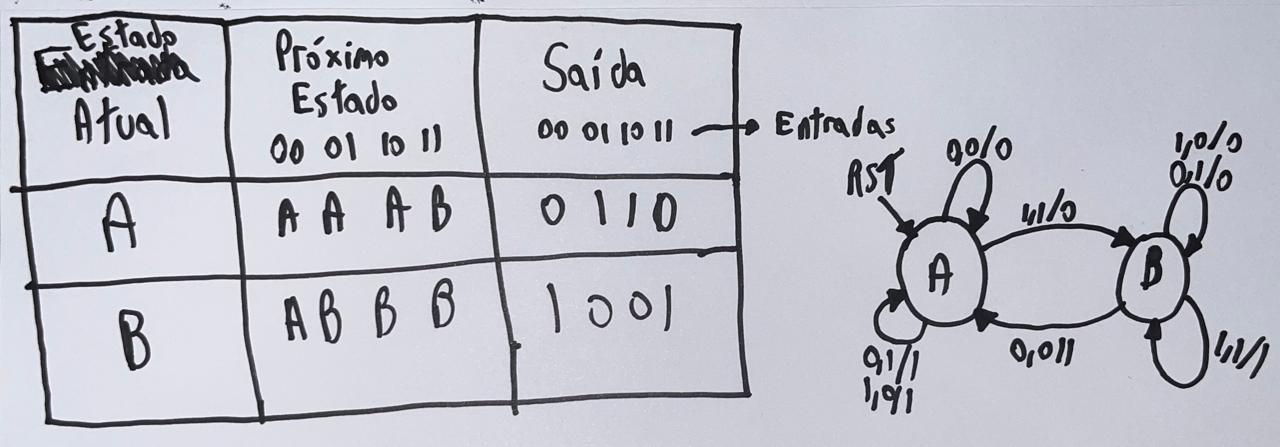 Estado
Atual
Próximo
Estado
00 01 10 11
Saída
00 01 10 11
Entradas
A
A A A B
0 1 1 0
B
A B B B
1 0 0 1
RST
0,0/0
1,1/0
1,0/0
0,1/0
A
B
0,1/1
1,0/1
0,0/1
1,1/1